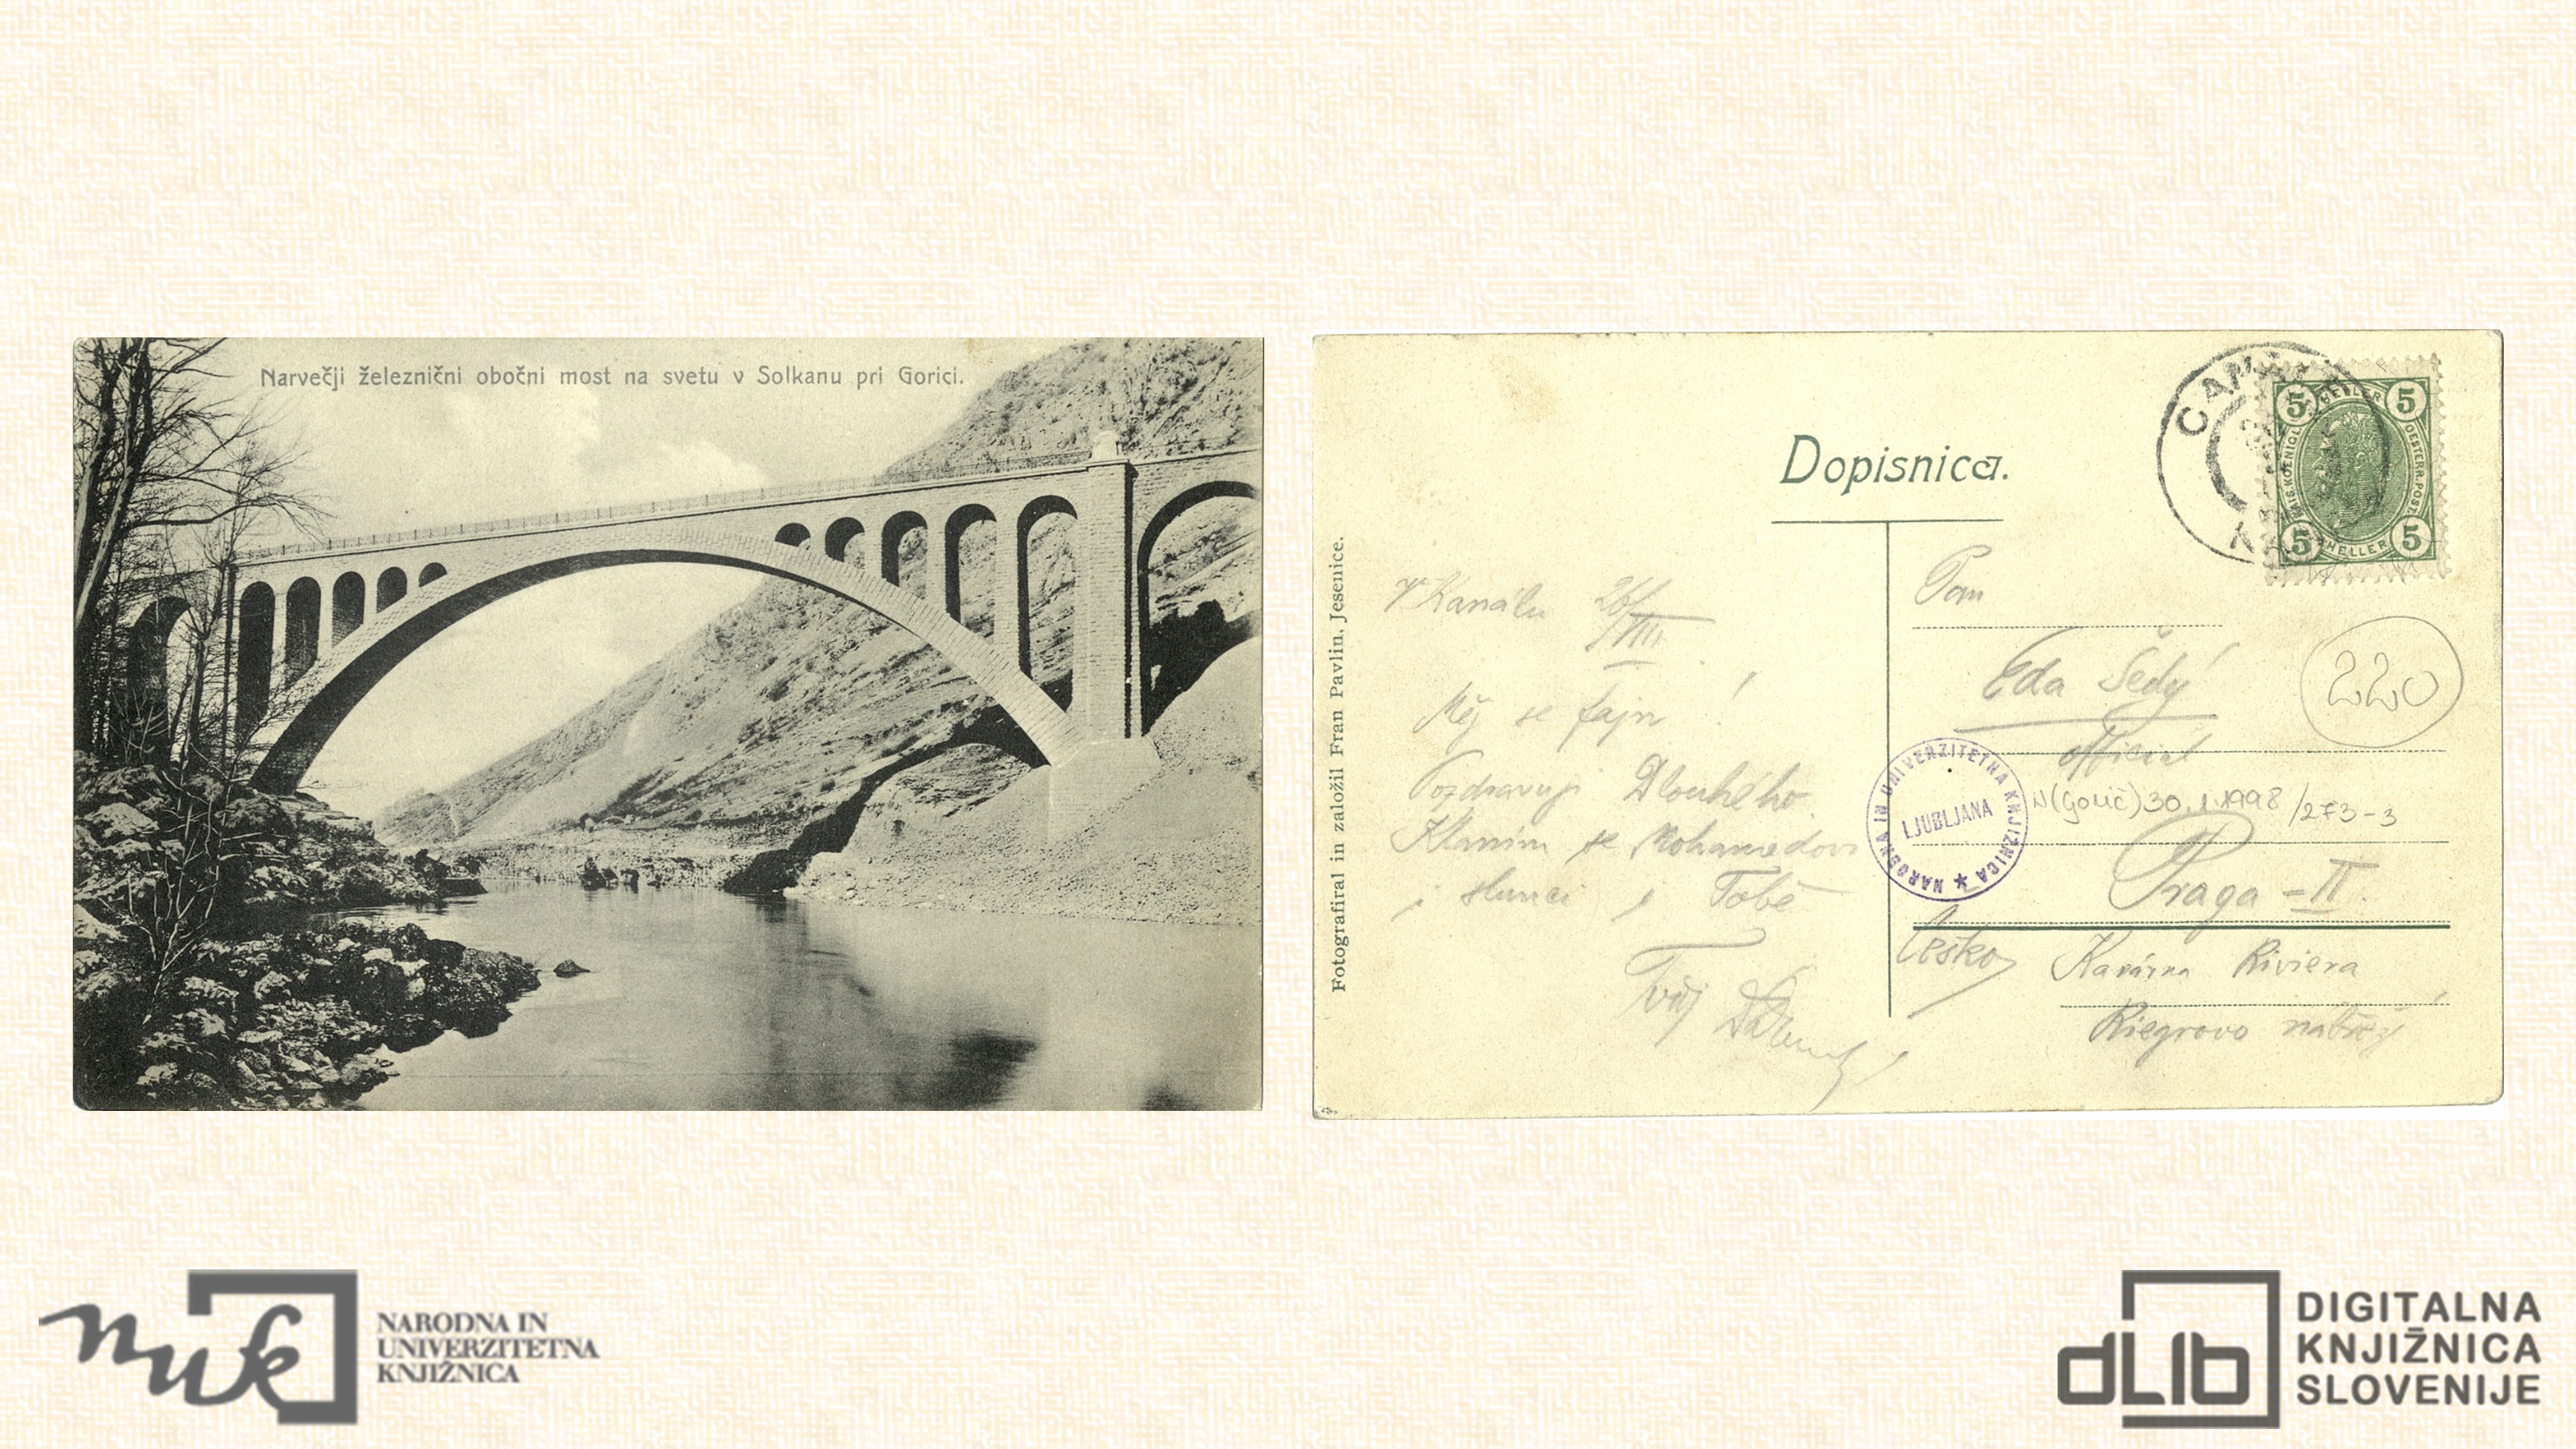 Narvečji železnični obočni most na svetu v Solkanu pri Gorici.
Fotografiral in založil Fran Pavlin, Jesenice.
Dopisnica.
CAN
5 HELLER 5
KAIS. KOENIGL. OESTERR. POST
5 HELLER 5
V Kanálu 26/VIII.
Měj se fajn!
Pozdravuji Dlouhého.
Klaním se Mohamedovi
i slunci i Tobě
Tvůj
Pan
Eda Šedý
official
220
NARODNA IN UNIVERZITETNA KNJIŽNICA
LJUBLJANA
N(Gorič)30.1.1998/273-3
Praga - II.
Česko
Kavárna Riviera
Riegrovo nábřeží
nuk
NARODNA IN
UNIVERZITETNA
KNJIŽNICA
dLib
DIGITALNA
KNJIŽNICA
SLOVENIJE